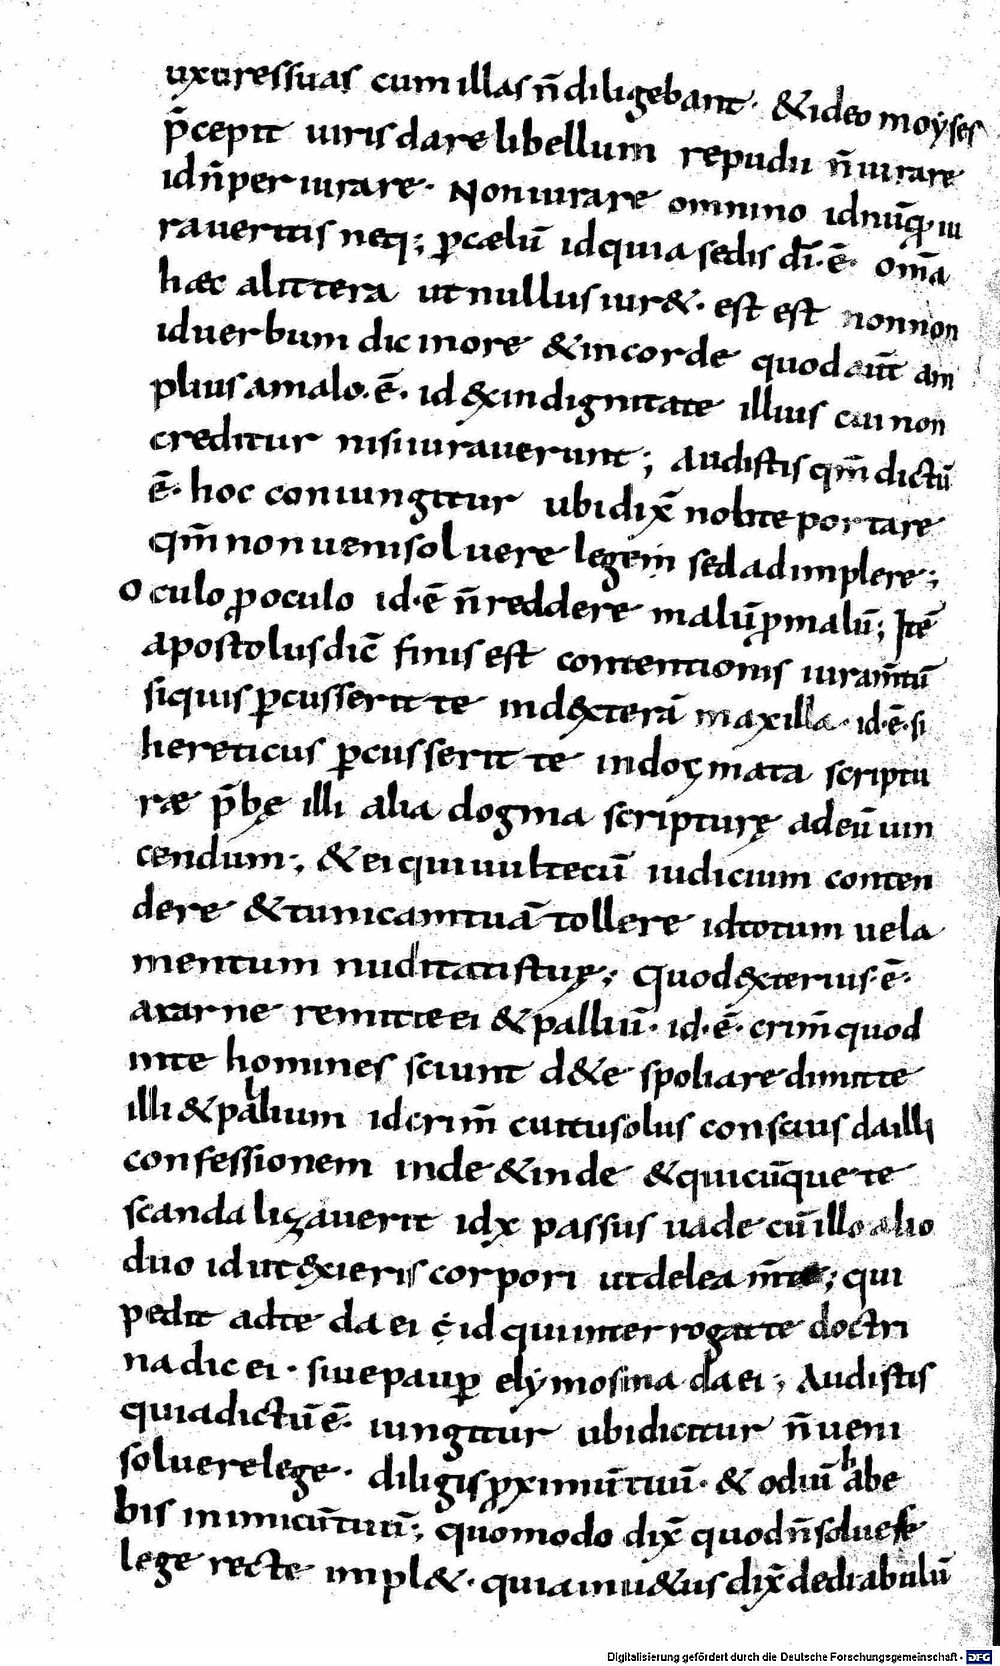 uxoressuas cum illas n̄ diligebant · & ideo moyses
p̄cepit uiris dare libellum repudii n̄ iurare
id n̄ periurare · Non iurare omnino id nūq̄ · iu
raueritis neq; p̱ cælū id quia sedis dī · ē · om̄a
hæc alittera ut nullus iur& · est est non non
id uerbum dic in ore & in corde quod aūt am
plius a malo · ē · id & ex indignitate illius cui non
creditur nisi iurauerunt ; Audistis qm̄ dictū
ē · hoc coniungitur ubi dix̄ nolite portare
qm̄ non ueni soluere legem sed adimplere ;
Oculo ꝓ oculo id · ē n̄ reddere malū ꝓ malū ; Itē
apostolus dic̄ finis est contentionis iuram̄tū
si quis ꝑcusserit te in dexterā maxilla · id · ē · si
hereticus ꝑcusserit te in docmata scriptu
ræ p̄bę illi alia dogma scripturę ad eū uin
cendum ; & ei qui uult tecū iudicium conten
dere & tunicam tuā tollere id totum uela
mentum nuditatis tuę ; quod exterius · ē ·
remittie ei & palliū · id · ē · crim̄ quod
in te homines sciunt de te spoliare dimitte
illi & pallium id crim̄ cui tu solus conscius da illi
confessionem inde & inde & quicūque te
scandalizauerit id x passus uade cū illo alio
duo id ut exieris corpori ut delea ; qui
pedit ad te da ei id qui interrogat te doctri
na dic ei · siue pauꝑ elymosina da ei ; Audistis
quia dictū ē · iungitur ubi dicitur n̄ ueni
soluere lege · diligis ꝓximū tuū · & odiū habe
bis inimicū tuū ; quomodo dix̄ quod n̄ soluere
lege recte impl& · quia in u&us dix̄ de diabulū
Digitalisierung gefördert durch die Deutsche Forschungsgemeinschaft · DFG